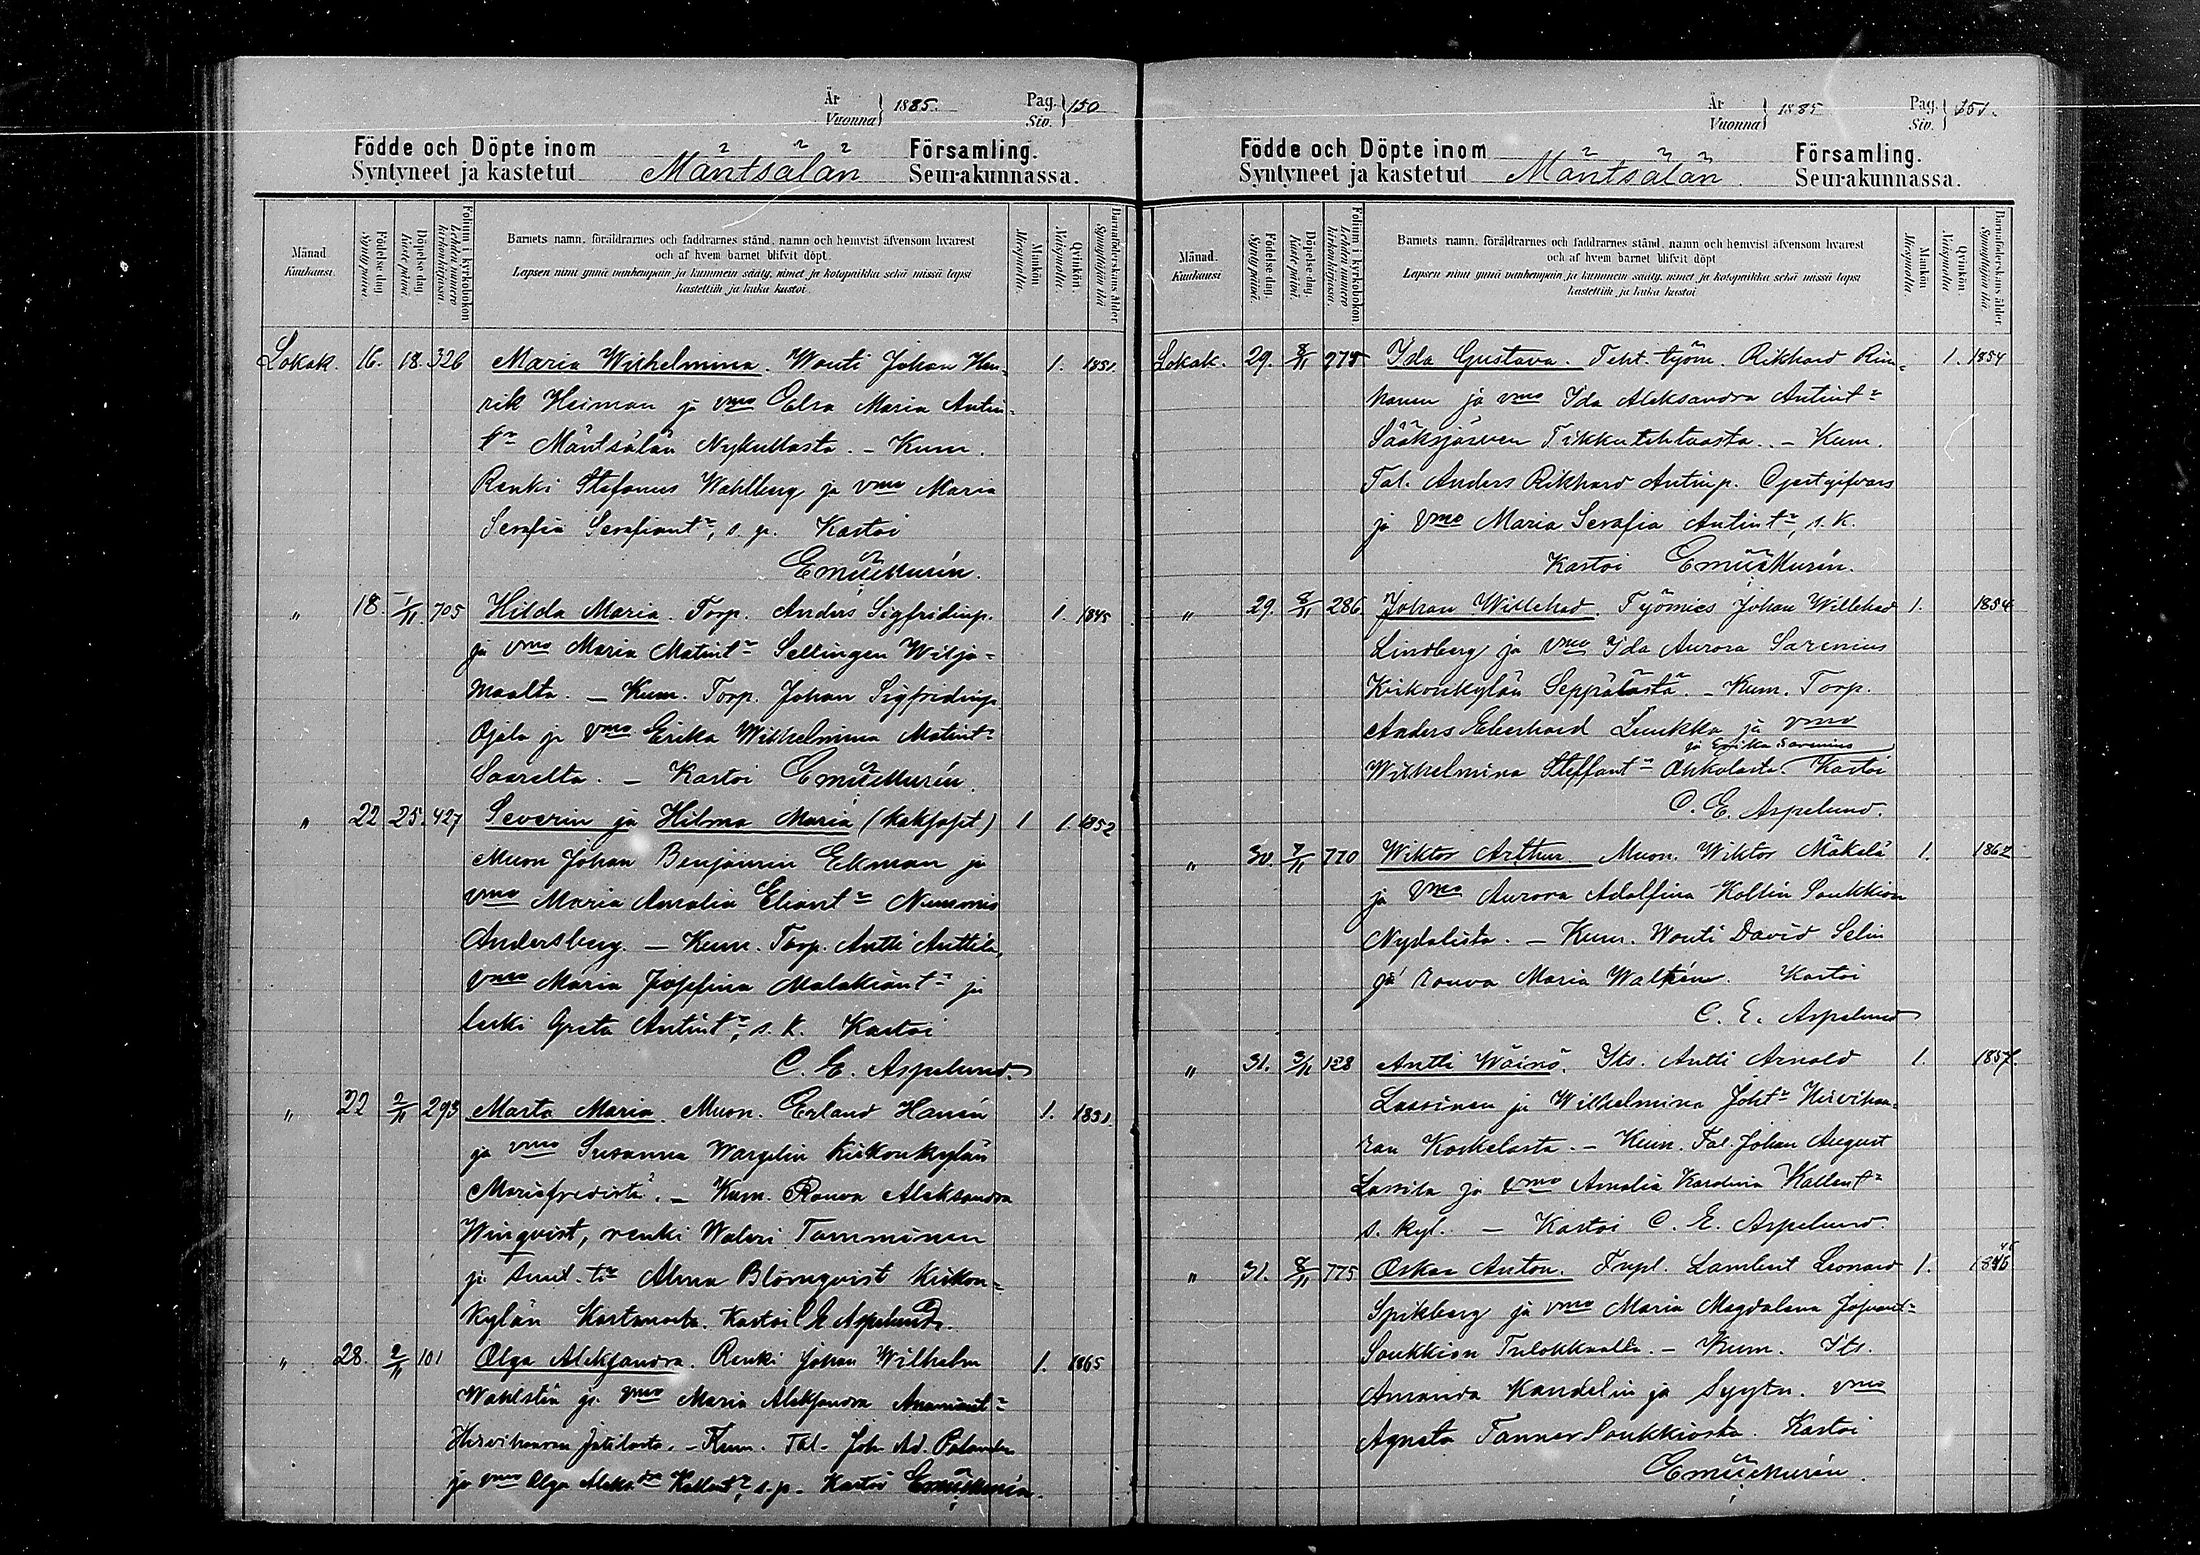 År
Vuonna } 1885. Pag.
Siv. } 150
Födde och Döpte inom Mäntsälän Församling.
Syntyneet ja kastetut Seurakunnassa.
Månad. Kuukausi.
Födelse-dag. Syntypäivä.
Döpelse-dag. Kastepäivä.
Folium i kyrkoboken. Lehden numero kirkonkirjassa.
Barnets namn, föräldrarnes och faddrarnes stånd, namn och hemvist äfvensom hvarest
och af hvem barnet blifvit döpt.
Lapsen nimi ynnä vanhempain ja kummein sääty, nimet ja kotopaikka sekä missä lapsi
kastettiin ja kuka kastoi.
Mankön. Miespuolia.
Qvinkön. Naispuolia.
Barnaföderskans ålder. Synnyttäjän ikä.
Lokak. 16. 18. 326 Maria Wilhelmina. Wouti Johan Hen- 1. 1851.
rik Heiman ja vmo Elsa Maria Antin-
tr Mäntsälän Nykullasta. - Kum.
Renki Stefanus Wahlberg ja vmo Maria
Serafia Serafiant., s. p. Kastoi
Emil Murén.
" 18. 1/11. 705 Hilda Maria. Torp. Anders Sigfridinp. 1. 1845
ja vmo Maria Matint. Sellingen Wilja-
maalta. - Kum. Torp. Johan Sigfridinp
Ojala ja vmo Erika Wilhelmina Matint.
Saarelta. - Kastoi Emil Murén.
" 22 25. 427 Severin ja Hilma Maria (kaksoset) 1 1. 1852
Muon Johan Benjamin Ekman ja
vmo Maria Amalia Eliant. Nummis
Andersberg. - Kum. Torp. Antti Anttila,
vmo Maria Josefina Malakiant. ja
leski Greta Antint., s. k. Kastoi
C. E. Aspelund.
" 22 2/11 293 Marta Maria. Muon. Erland Hansén 1. 1851.
ja vmo Susanna Wargelin Kirkonkylän
Mariefredistä. - Kum. Rouva Aleksandra
Winqvist, renki Walvri Tamminen
ja tr Alma Blomqvist Kirkon-
kylän Kartanosta. Kastoi C E Aspelund.
" 28. 2/11 101 Olga Aleksandra. Renki Johan Wilhelm 1. 1865
Wahlstén ja vmo Maria Aleksandra Ananiant.
Hirvihaaran Jutilasta. - Kum. Tal. Joh. Ad. Palander
ja vmo Olga Aleks.dra Kallent., s. p. - Kastoi Emil Murén.
År
Vuonna } 1885 Pag.
Siv. } 151.
Födde och Döpte inom Mäntsälän Församling.
Syntyneet ja kastetut Seurakunnassa.
Månad. Kuukausi.
Födelse-dag. Syntypäivä.
Döpelse-dag. Kastepäivä.
Folium i kyrkoboken. Lehden numero kirkonkirjassa.
Barnets namn, föräldrarnes och faddrarnes stånd, namn och hemvist äfvensom hvarest
och af hvem barnet blifvit döpt.
Lapsen nimi ynnä vanhempain ja kummein sääty, nimet ja kotopaikka sekä missä lapsi
kastettiin ja kuka kastoi.
Mankön. Miespuolia.
Qvinkön. Naispuolia.
Barnaföderskans ålder. Synnyttäjän ikä.
Lokak. 29. 8/11 275 Ida Gustava. Teht. työm. Rikhard Rin- 1. 1854
ja vmo Ida Aleksandra Antint.
Sääksjärven Tikkutehtaasta. - Kum.
Tal. Anders Rikhard Antinp.
ja vmo Maria Serafia Antint., s. k.
Kastoi Emil Murén.
" 29. 8/11 286 Johan Willehad. Työmies Johan Willehad 1. 1854
Lindberg ja vmo Ida Aurora Sarenius
Kirkonkylän Seppälästä. - Kum. Torp.
Anders Eberhard Luukka ja vmo
ja Erika Sarenius
Wilhelmina Steffant. Ohkolasta. Kastoi
C. E. Aspelund.
" 30. 7/11 770 Wiktor Arthur. Muon. Wiktor Mäkelä 1. 1862
ja vmo Aurora Adolfina Kollin Soukkion
Nydalista. - Kum. Wouti David Selin
ja rouva Maria Walhén. Kastoi
C. E. Aspelund
" 31. 3/11 128 Antti Wäinö. Its. Antti Arnold 1. 1857.
Lassinen ja Wilhelmina Joht. Hirvihaa-
ran Koskelasta. - Kum. Tal. Johan August
Lassila ja vmo Amalia Karolina Kallent.
s. kyl. - Kastoi C. E. Aspelund.
" 31. 8/11 775 Oskar Anton. Lambert Leonard 1. 1846
Spikberg ja vmo Maria Magdalena
Soukkion Tulokkaalla. - Kum. Its.
Amanda Kandelin ja Syytn. vmo
Agneta Tanner Soukkiosta. Kastoi
Emil Murén.